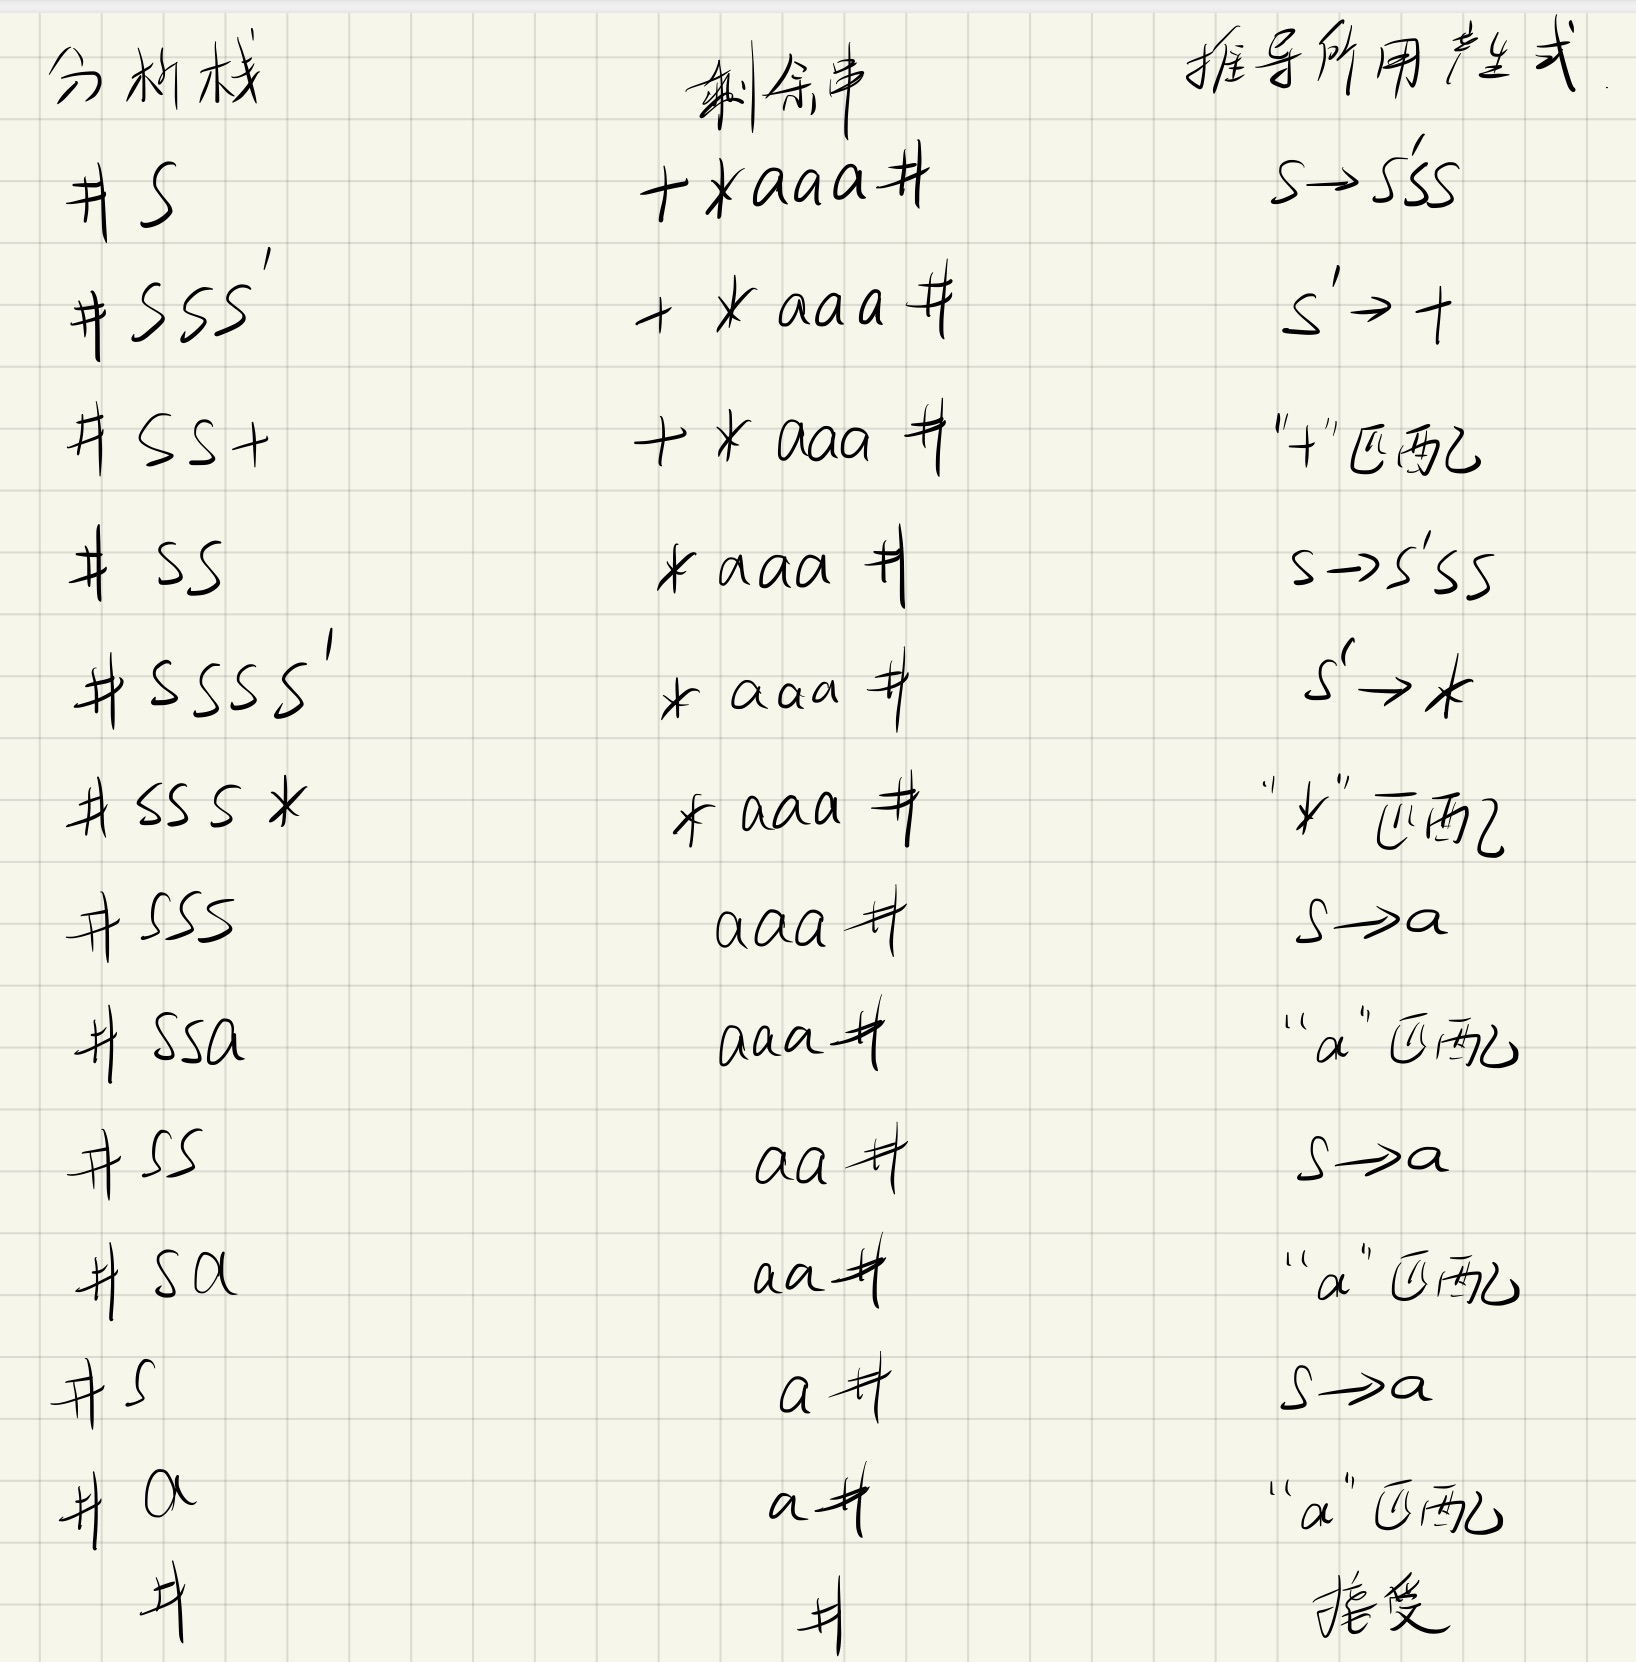 分析栈 剩余串 推导所用产生式
# S +*aaa# S→S'SS
# SSS' +*aaa# S'→+
# SS+ +*aaa# "+"匹配
# SS *aaa# S→S'SS
# SSSS' *aaa# S'→*
# SSS* *aaa# "*"匹配
# SSS aaa# S→a
# SSa aaa# "a"匹配
# SS aa# S→a
# Sa aa# "a"匹配
# S a# S→a
# a a# "a"匹配
# # 接受